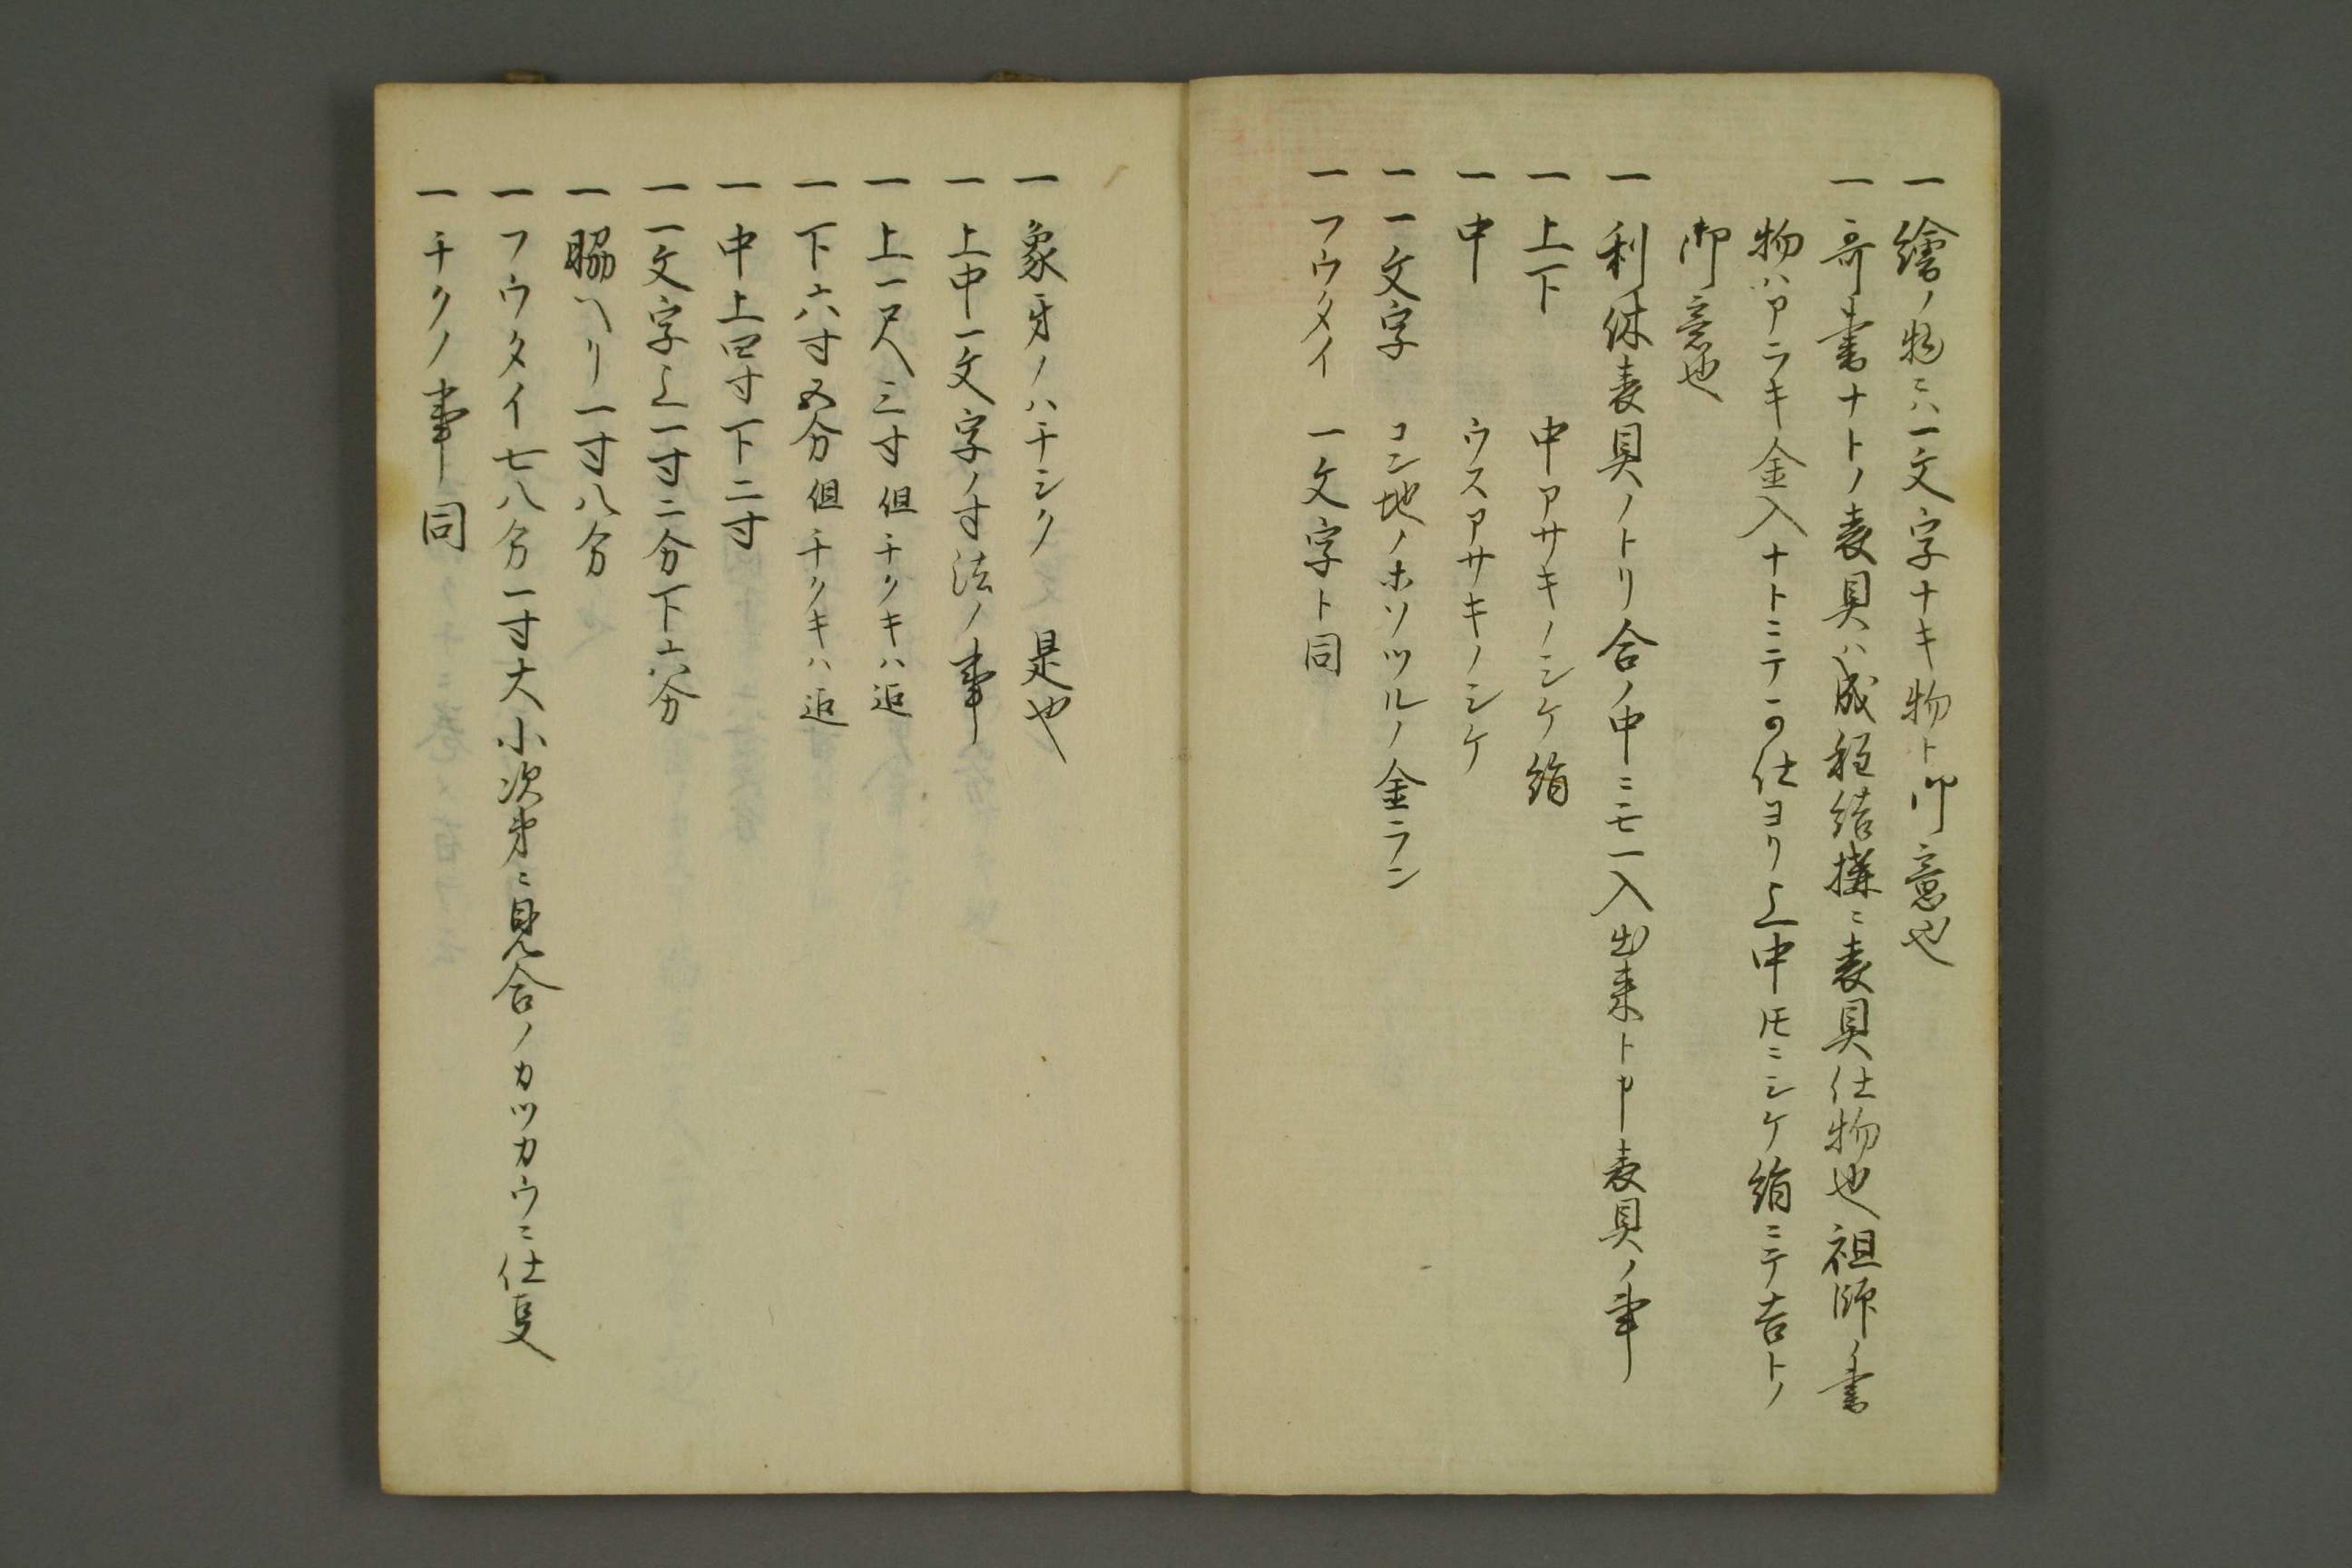 一繪ノ物ニハ一文字ナキ物ト御意也
一哥書ナトノ表具ハ成程結搆ニ表具仕物也祖師ノ書
物ハアラキ金入ナトニテ可仕ヨリ上中トモニシケ絹ニテ吉トノ
御意也
一利休表具ノトリ合ノ中ニモ一入出来ト申表具ノ事
一上下 中アサキノシケ絹
一中 ウスアサキノシケ
一一文字 コン地ノホソツルノ金ラン
一フウタイ 一文字ト同
一象牙ノハチシク 是也
一上中一文字ノ寸法ノ事
一上一尺三寸但チクキハ迠
一下六寸五分但チクキハ迠
一中上四寸下二寸
一一文字上一寸二分下六分
一脇ヘリ一寸八分
一フウタイ七八分一寸大小次第ニ見合ノカツカウニ仕叓
一チクノ事同